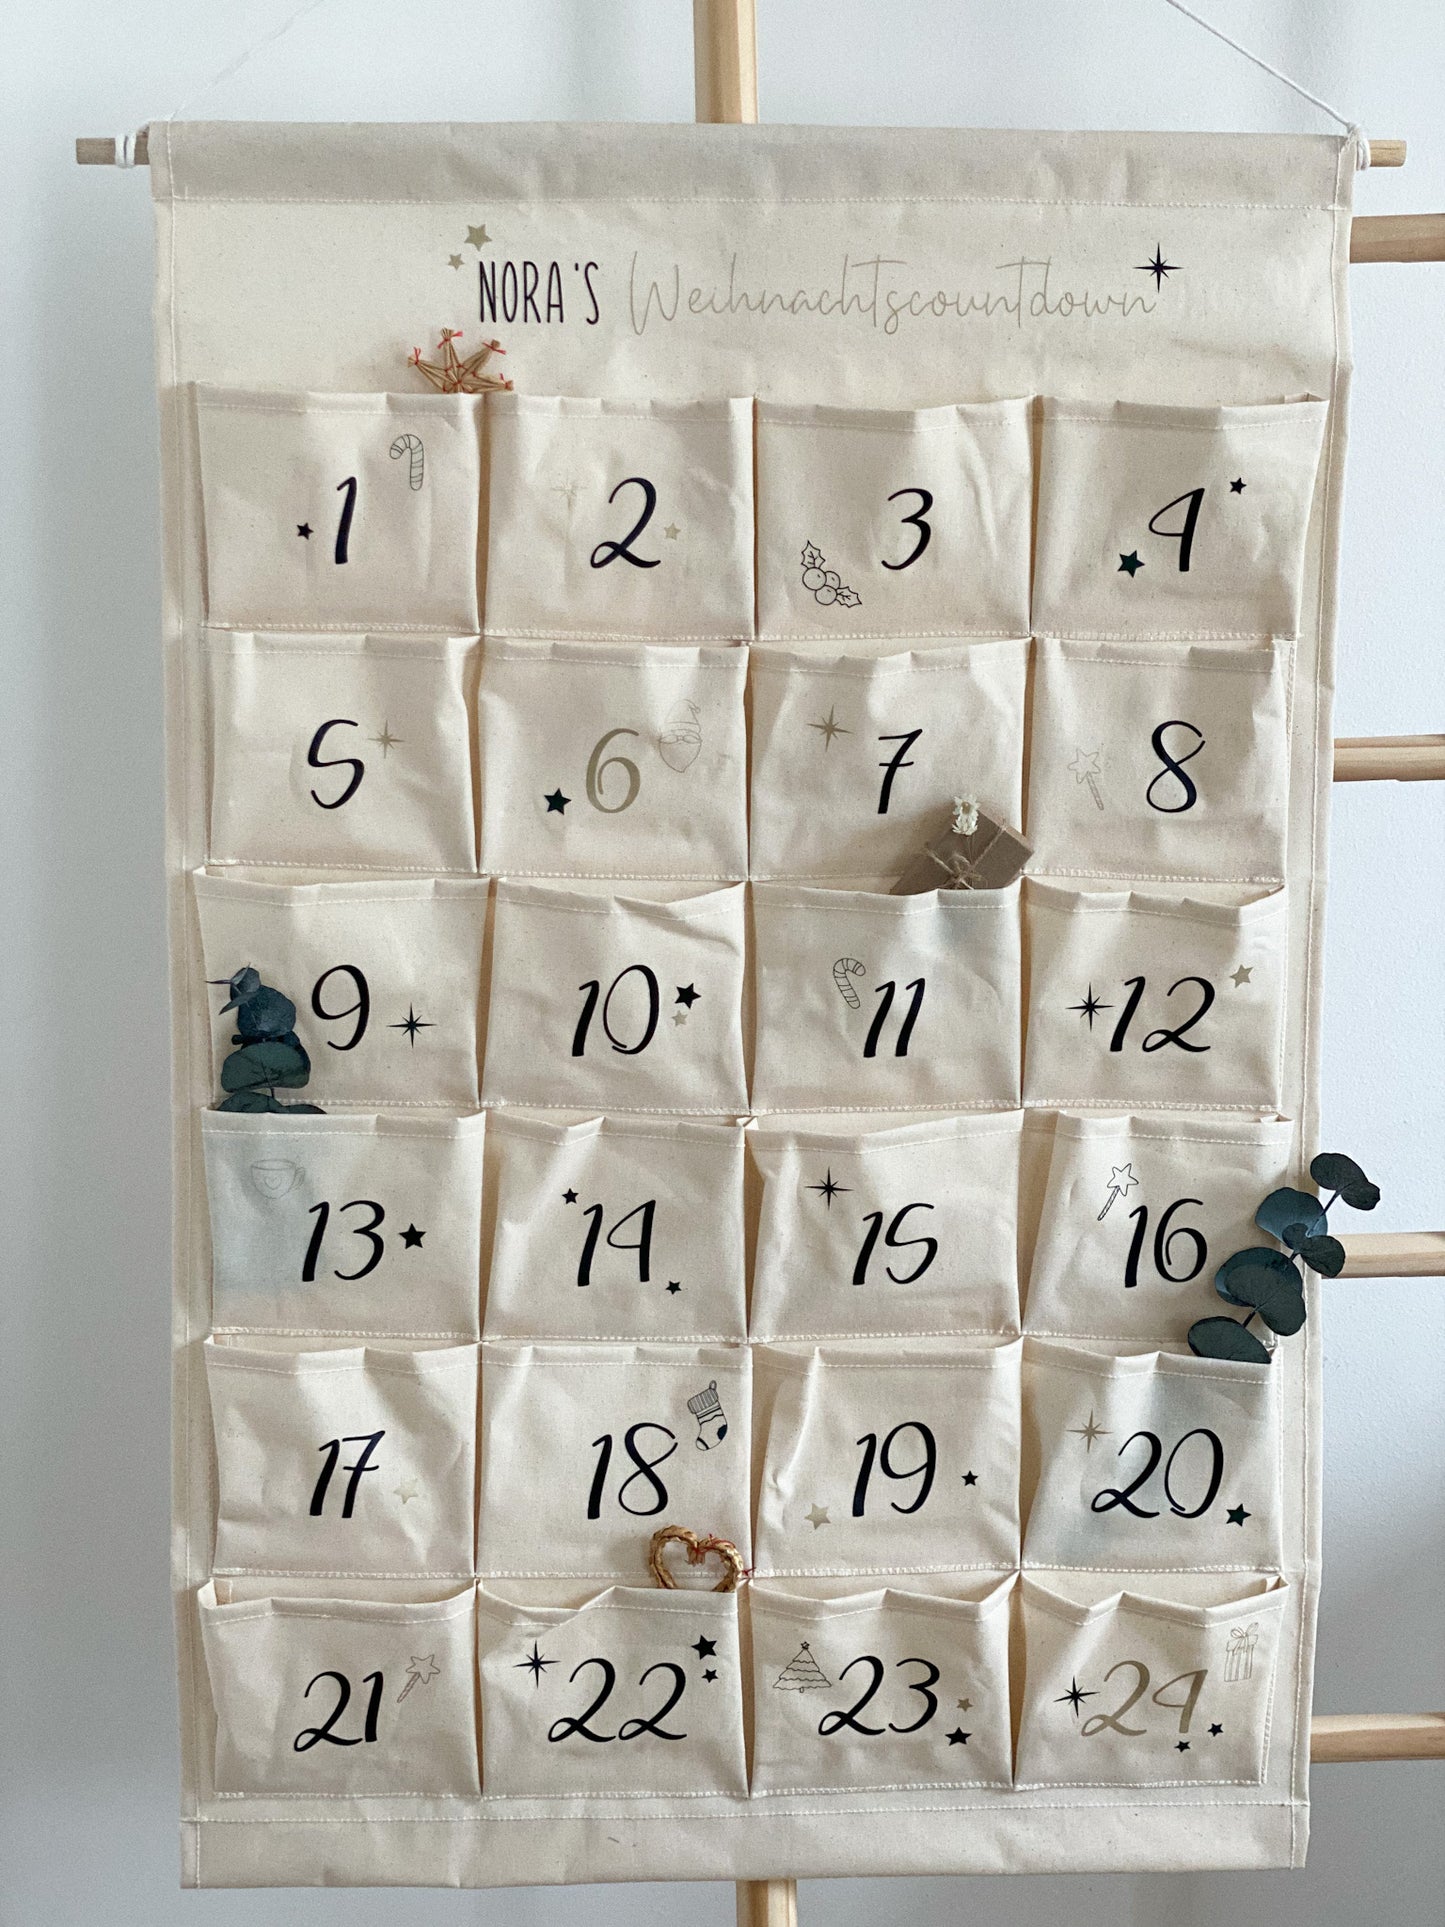 NORA'S Weihnachtscountdown
1 2 3 4
5 6 7 8
9 10 11 12
13 14 15 16
17 18 19 20
21 22 23 24